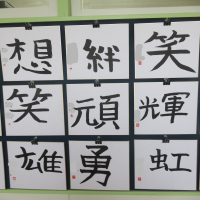 想 絆 笑
笑 頑 輝
雄 勇 虹